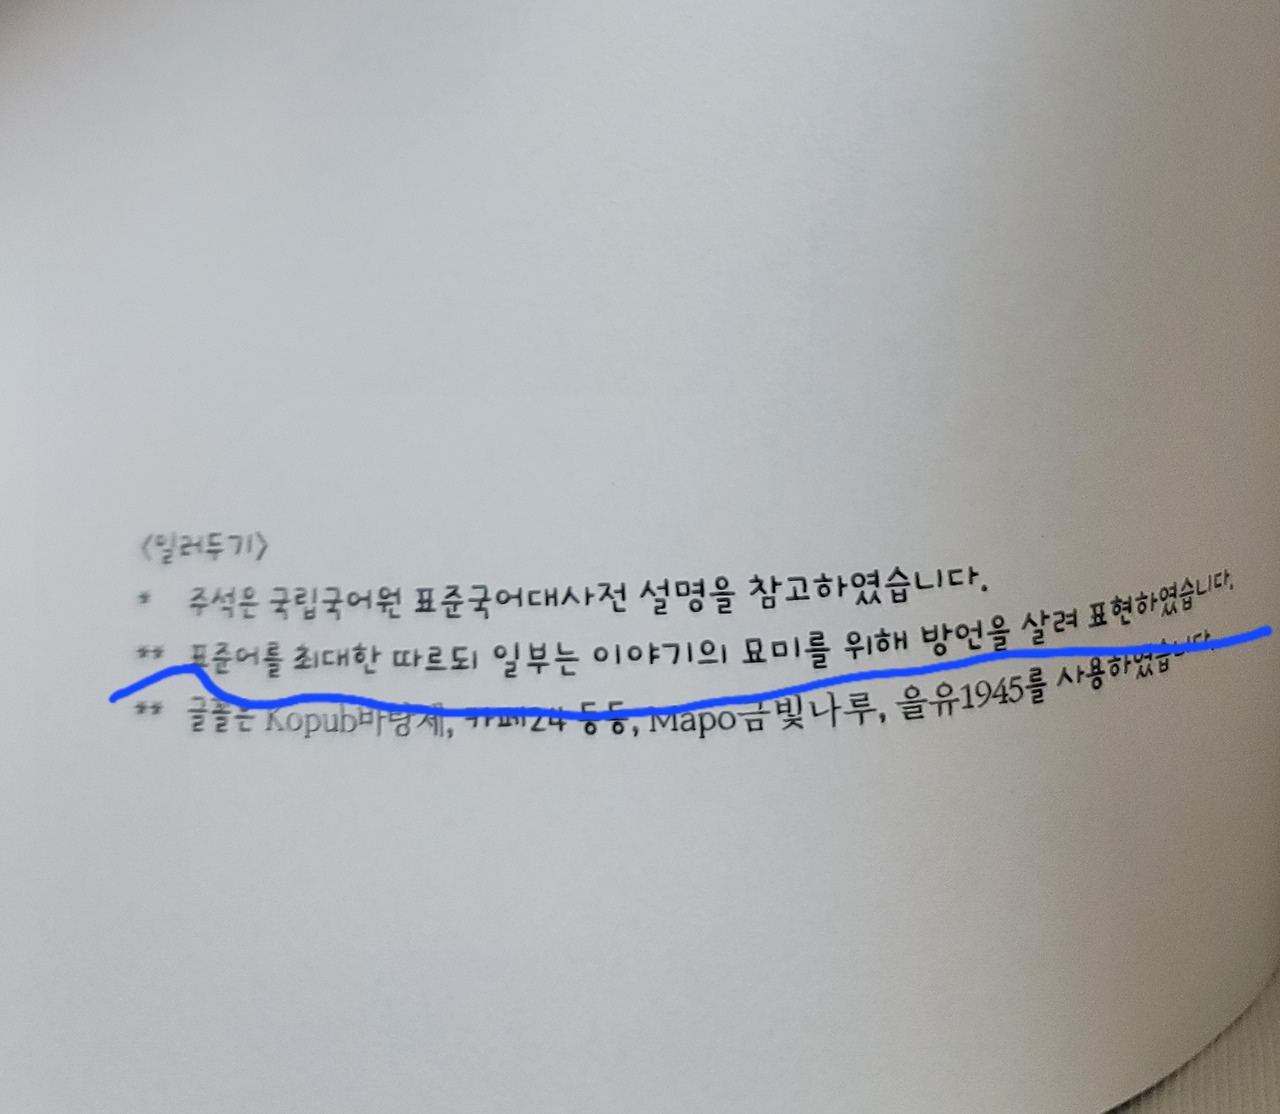 <일러두기>
* 주석은 국립국어원 표준국어대사전 설명을 참고하였습니다.
** 표준어를 최대한 따르되 일부는 이야기의 묘미를 위해 방언을 살려 표현하였습니다.
** 글꼴은 Kopub바탕체, 카페24 동동, Mapo금빛나루, 을유1945를 사용하였습니다